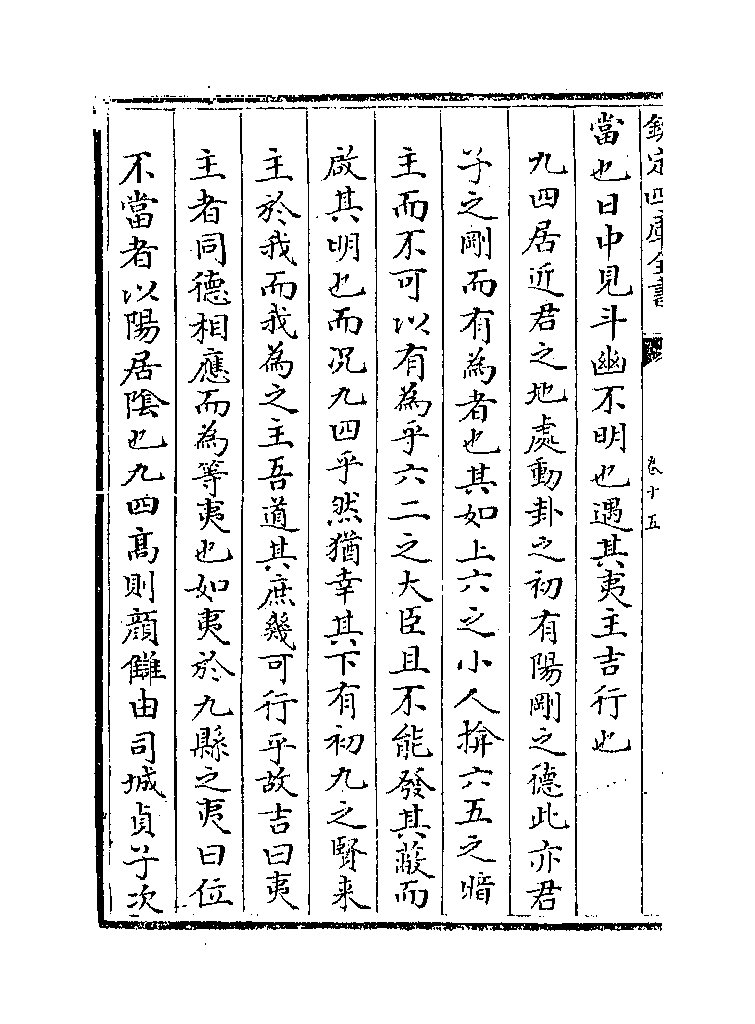 欽定四庫全書
卷十五
當也日中見斗幽不明也遇其夷主吉行也
九四居近君之地處動卦之初有陽剛之德此亦君
子之剛而有為者也其如上六之小人揜六五之暗
主而不可以有為乎六二之大臣且不能發其蔽而
啟其明也而况九四乎然猶幸其下有初九之賢来
主於我而我為之主吾道其庶幾可行乎故吉曰夷
主者同德相應而為等夷也如夷於九縣之夷曰位
不當者以陽居陰也九四髙則顔讎由司城貞子次